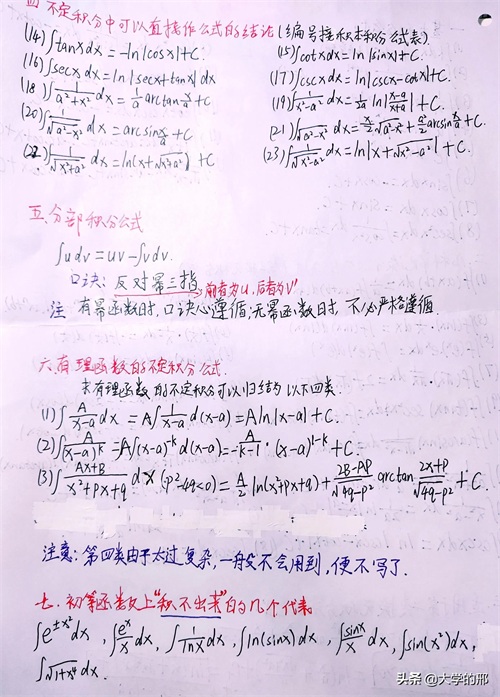 四 不定积分中可以直接作公式的结论(编号接积本积分公式表)
(14) ∫tanxdx=-ln|cosx|+C. (15)∫cotxdx=ln|sinx|+C.
(16)∫secxdx=ln|secx+tanx|dx (17)∫cscxdx=ln|cscx-cotx|+C.
(18)∫1/(a²+x²)dx=1/a arctan x/a+C (19)∫1/(x²-a²)dx=1/2a ln|(x-a)/(x+a)|+C.
(20)∫1/√(a²-x²) dx=arcsin x/a+C (21)∫√(a²-x²)dx=x/2√(a²-x²)+a²/2 arcsin x/a+C
(22)∫1/√(x²+a²) dx=ln(x+√(x²+a²))+C (23)∫1/√(x²-a²)dx=ln|x+√(x²-a²)|+C.
五.分部积分公式
∫udv=uv-∫vdv.
口诀: 反对幂三指 前者为u,后者为v'
注 有幂函数时,口诀必遵循;无幂函数时,不必严格遵循
六.有理函数的不定积分公式.
求有理函数的不定积分可以归结为以下四类.
(1)∫A/(x-a) dx=A∫1/(x-a) d(x-a)=Aln|x-a|+C.
(2)∫A/(x-a)^k=A∫(x-a)^-k d(x-a)=-A/(k-1)·(x-a)^(1-k)+C.
(3)∫(Ax+B)/(x²+px+q) dx (p²-4q<0)=A/2 ln(x²+px+q)+(2B-AP)/√(4q-p²) arctan (2x+p)/√(4q-p²)+C.
注意: 第四类由于太过复杂,一般没不会用到,便不写了.
七. 初等函数上"积不出来"的几个代表
∫e^(±x²)dx, ∫e^x/x dx, ∫1/lnx dx, ∫ln(sinx)dx, ∫sinx/x dx, ∫sin(x²)dx,
∫√(1+x⁴) dx.
头条 @大学的邢